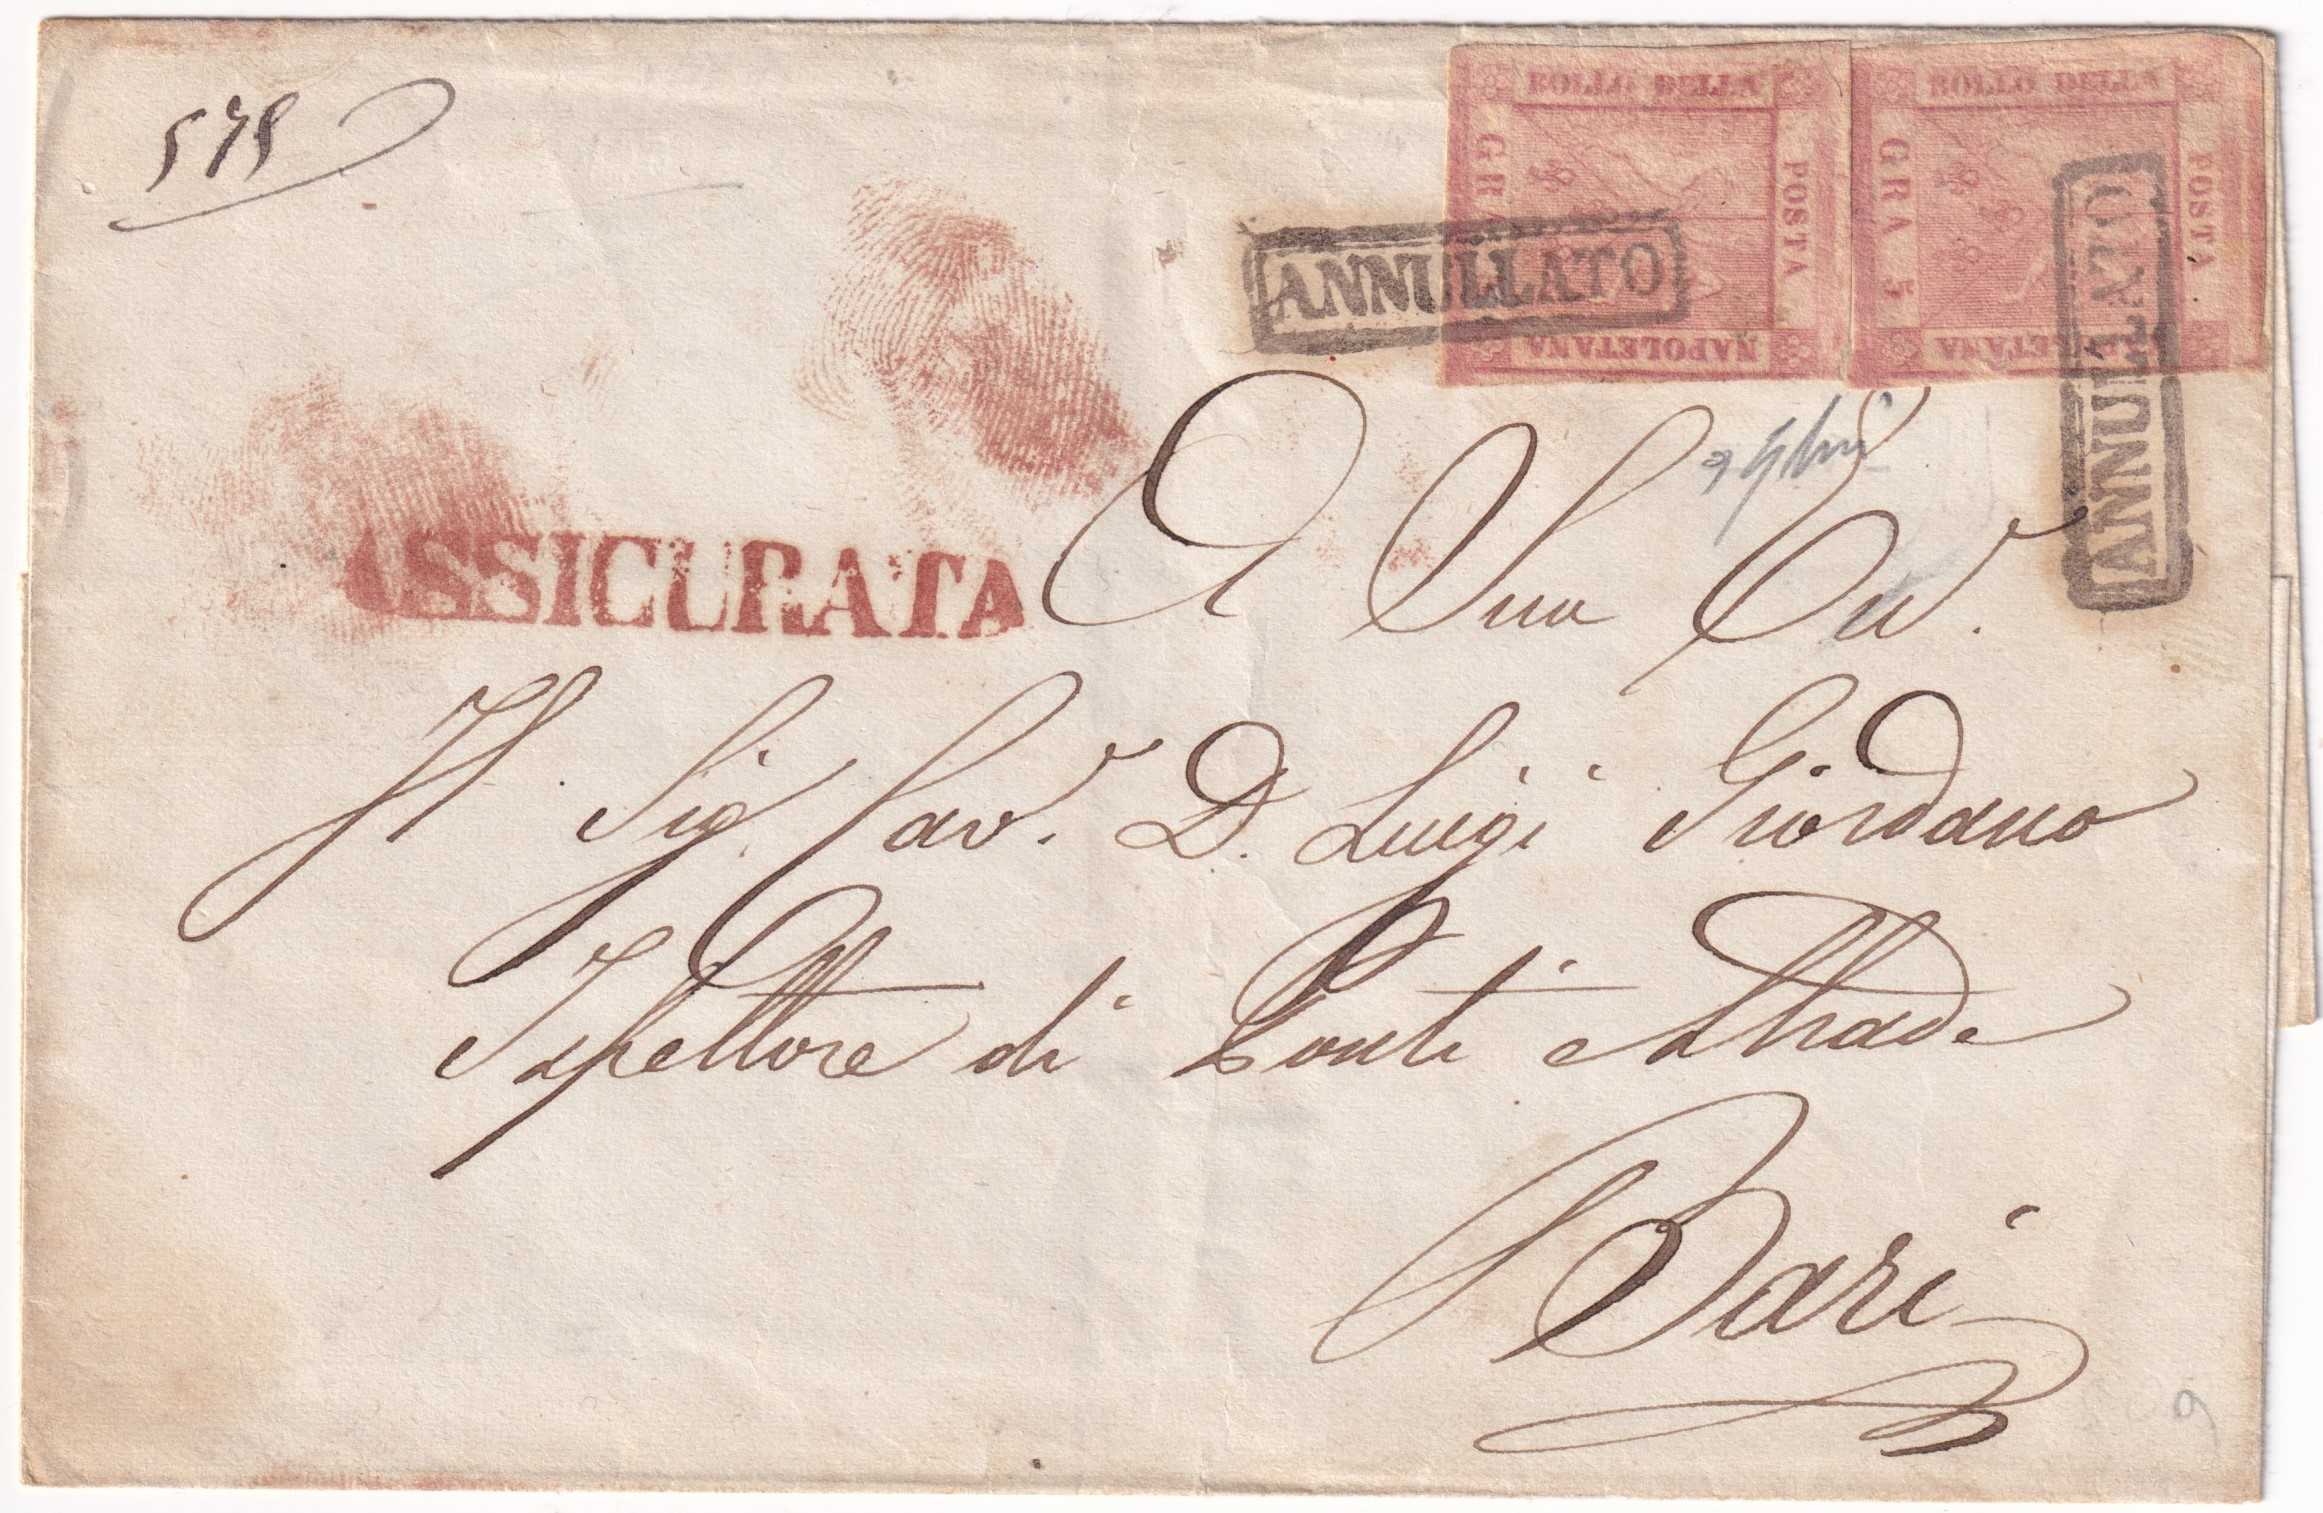 BOLLO DELLA
BOLLO DELLA
GRA
POSTA
GRA 5
POSTA
NAPOLETANA
ETANA
ANNULLATO
ANNULLATO
ASSICURATA
A Sua Ecc.
Il Sig. Cav. D. Luigi Giordano
Ispettore di Ponti e Strade
Bari
9